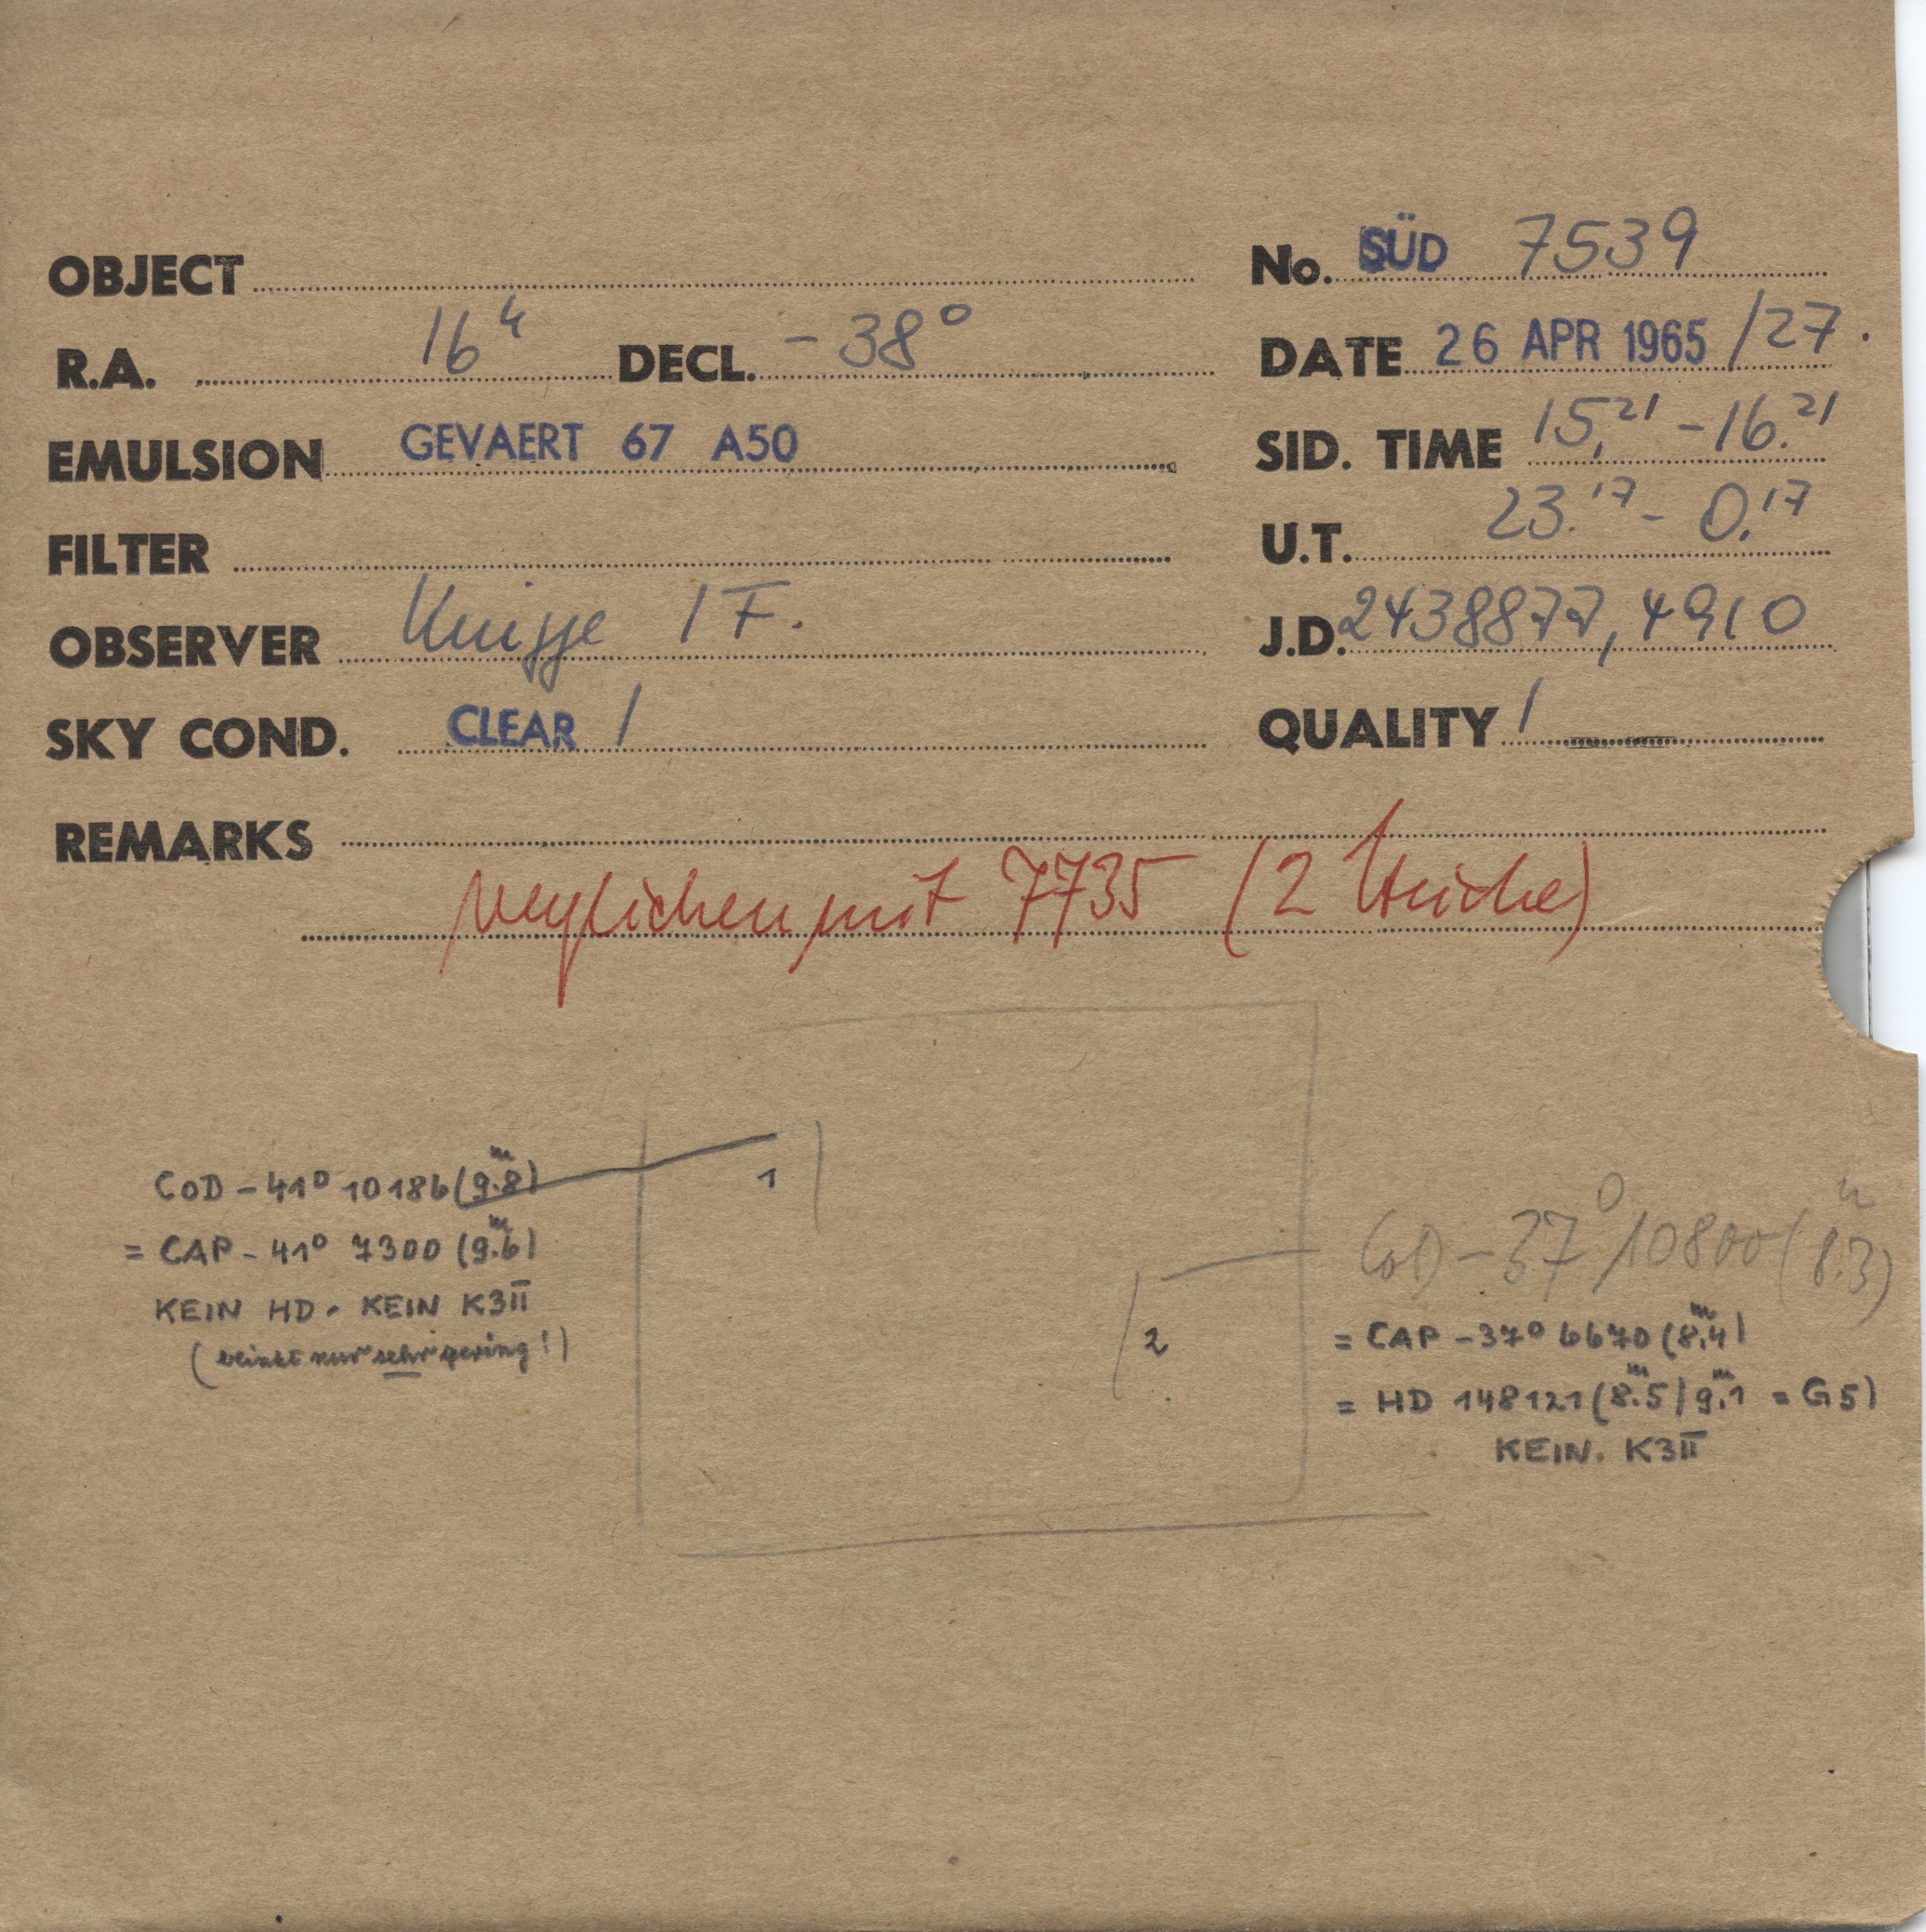 OBJECT No. SÜD 7539
R.A. 16h DECL. -38° DATE 26 APR 1965 /27.
EMULSION GEVAERT 67 A50 SID. TIME 15,21 - 16.21
FILTER U.T. 23.17 - 0.17
OBSERVER Knigge IF. J.D. 2438877,4910
SKY COND. CLEAR 1 QUALITY 1
REMARKS
verglichen mit 7735 (2 Striche)
CoD -41° 10186 (9.m8)
= CAP - 41° 7300 (9.m6)
KEIN HD. KEIN K3II
(blinkt nur sehr gering!)
1
2
CoD -37° 10800 (8.m3)
= CAP -37° 6670 (8.m4)
= HD 148121 (8.m5/9.m1 = G5)
KEIN. K3II